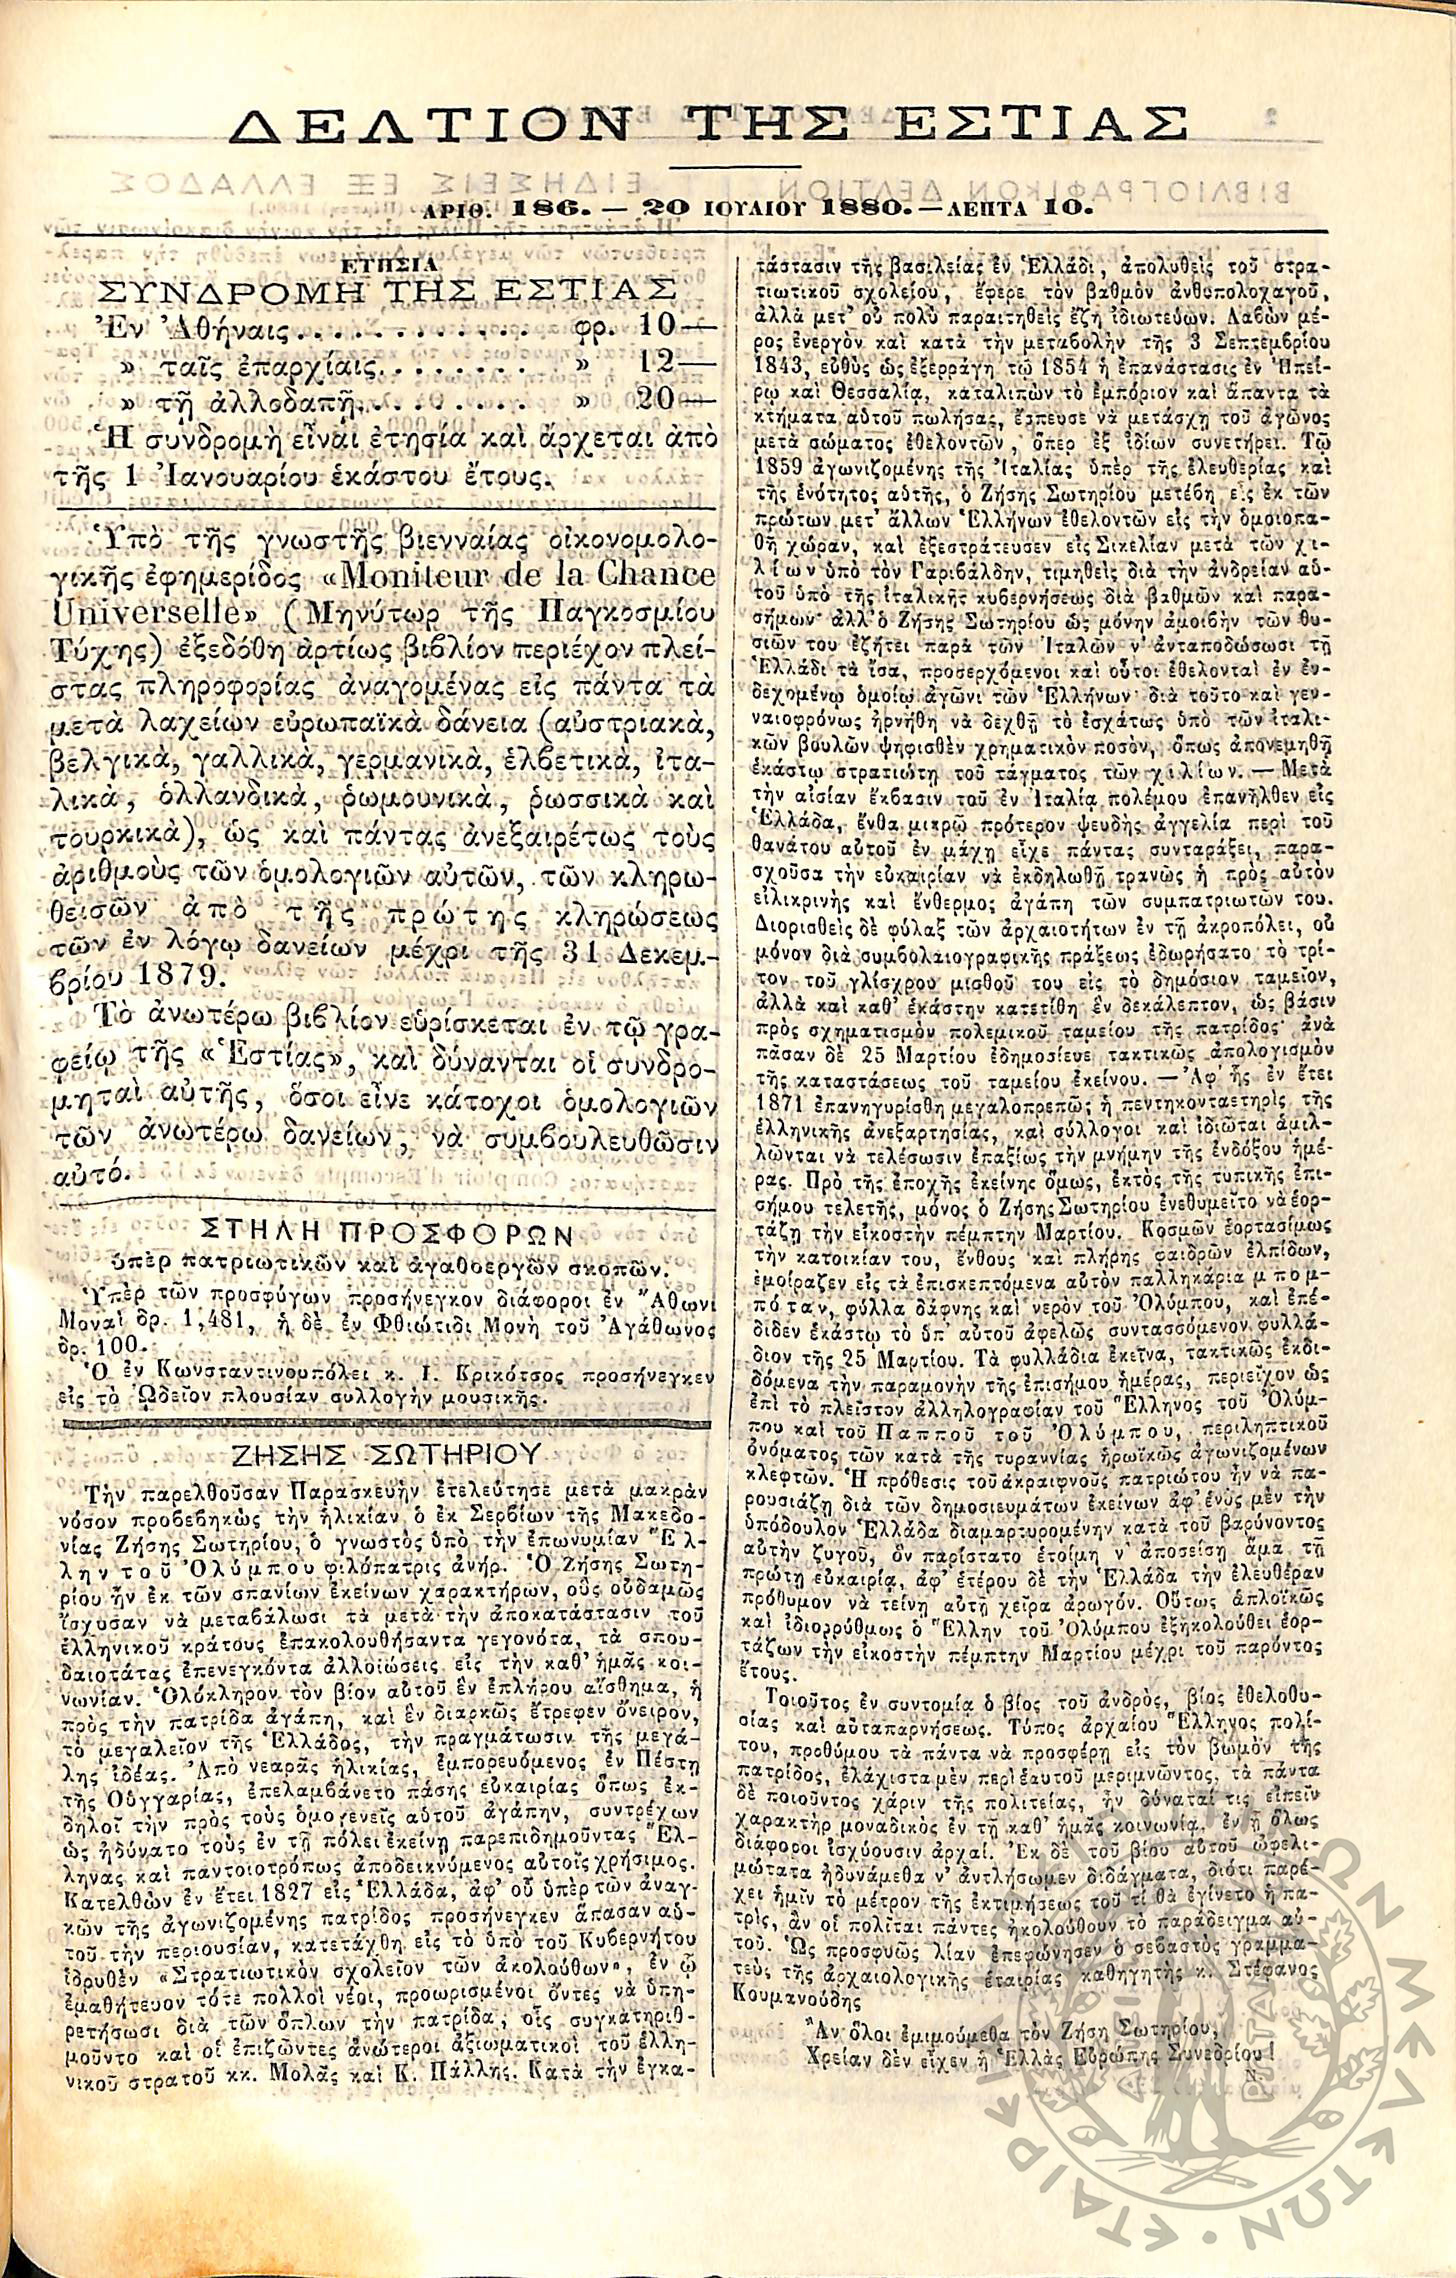 ΔΕΛΤΙΟΝ ΤΗΣ ΕΣΤΙΑΣ
ΑΡΙΘ. 186. — 20 ΙΟΥΛΙΟΥ 1880. — ΛΕΠΤΑ 10.
ΕΤΗΣΙΑ
ΣΥΝΔΡΟΜΗ ΤΗΣ ΕΣΤΙΑΣ
Ἐν Ἀθήναις............ φρ. 10—
» ταῖς ἐπαρχίαις......... » 12—
» τῇ ἀλλοδαπῇ.......... » 20—
Ἡ συνδρομὴ εἶναι ἐτησία καὶ ἄρχεται ἀπὸ
τῆς 1 Ἰανουαρίου ἑκάστου ἔτους.
Ὑπὸ τῆς γνωστῆς βιενναίας οἰκονομολο-
γικῆς ἐφημερίδος «Moniteur de la Chance
Universelle» (Μηνύτωρ τῆς Παγκοσμίου
Τύχης) ἐξεδόθη ἀρτίως βιβλίον περιέχον πλεί-
στας πληροφορίας ἀναγομένας εἰς πάντα τὰ
μετὰ λαχείων εὐρωπαϊκὰ δάνεια (αὐστριακὰ,
βελγικὰ, γαλλικὰ, γερμανικὰ, ἑλβετικὰ, ἰτα-
λικὰ, ὁλλανδικὰ, ῥωμουνικὰ, ῥωσσικὰ καὶ
τουρκικὰ), ὡς καὶ πάντας ἀνεξαιρέτως τοὺς
ἀριθμοὺς τῶν ὁμολογιῶν αὐτῶν, τῶν κληρω-
θεισῶν ἀπὸ τῆς πρώτης κληρώσεως
τῶν ἐν λόγῳ δανείων μέχρι τῆς 31 Δεκεμ-
βρίου 1879.
Τὸ ἀνωτέρω βιβλίον εὑρίσκεται ἐν τῷ γρα-
φείῳ τῆς «Ἑστίας», καὶ δύνανται οἱ συνδρο-
μηταὶ αὐτῆς, ὅσοι εἶνε κάτοχοι ὁμολογιῶν
τῶν ἀνωτέρω δανείων, νὰ συμβουλευθῶσιν
αὐτό.
ΣΤΗΛΗ ΠΡΟΣΦΟΡΩΝ
ὑπὲρ πατριωτικῶν καὶ ἀγαθοεργῶν σκοπῶν.
Ὑπὲρ τῶν προσφύγων προσήνεγκον διάφοροι ἐν Ἄθωνι
Μοναὶ δρ. 1,481, ἡ δὲ ἐν Φθιώτιδι Μονὴ τοῦ Ἀγάθωνος
δρ. 100.
Ὁ ἐν Κωνσταντινουπόλει κ. Ι. Κρικότσος προσήνεγκεν
εἰς τὸ Ὠδεῖον πλουσίαν συλλογὴν μουσικῆς.
ΖΗΣΗΣ ΣΩΤΗΡΙΟΥ
Τὴν παρελθοῦσαν Παρασκευὴν ἐτελεύτησε μετὰ μακρὰν
νόσον προβεβηκὼς τὴν ἡλικίαν ὁ ἐκ Σερβίων τῆς Μακεδο-
νίας Ζήσης Σωτηρίου, ὁ γνωστὸς ὑπὸ τὴν ἐπωνυμίαν Ἕλ-
λην τοῦ Ὀλύμπου φιλόπατρις ἀνήρ. Ὁ Ζήσης Σωτη-
ρίου ἦν ἐκ τῶν σπανίων ἐκείνων χαρακτήρων, οὓς οὐδαμῶς
ἴσχυσαν νὰ μεταβάλωσι τὰ μετὰ τὴν ἀποκατάστασιν τοῦ
ἑλληνικοῦ κράτους ἐπακολουθήσαντα γεγονότα, τὰ σπου-
δαιοτάτας ἐπενεγκόντα ἀλλοιώσεις εἰς τὴν καθ' ἡμᾶς κοι-
νωνίαν. Ὁλόκληρον τὸν βίον αὐτοῦ ἓν ἐπλήρου αἴσθημα, ἡ
πρὸς τὴν πατρίδα ἀγάπη, καὶ ἓν διαρκῶς ἔτρεφεν ὄνειρον,
τὸ μεγαλεῖον τῆς Ἑλλάδος, τὴν πραγμάτωσιν τῆς μεγά-
λης ἰδέας. Ἀπὸ νεαρᾶς ἡλικίας, ἐμπορευόμενος ἐν Πέστῃ
τῆς Οὑγγαρίας, ἐπελαμβάνετο πάσης εὐκαιρίας ὅπως ἐκ-
δηλοῖ τὴν πρὸς τοὺς ὁμογενεῖς αὐτοῦ ἀγάπην, συντρέχων
ὡς ἠδύνατο τοὺς ἐν τῇ πόλει ἐκείνῃ παρεπιδημοῦντας Ἕλ-
ληνας καὶ παντοιοτρόπως ἀποδεικνύμενος αὐτοῖς χρήσιμος.
Κατελθὼν ἐν ἔτει 1827 εἰς Ἑλλάδα, ἀφ' οὗ ὑπὲρ τῶν ἀναγ-
κῶν τῆς ἀγωνιζομένης πατρίδος προσήνεγκεν ἅπασαν αὑ-
τοῦ τὴν περιουσίαν, κατετάχθη εἰς τὸ ὑπὸ τοῦ Κυβερνήτου
ἱδρυθὲν «Στρατιωτικὸν σχολεῖον τῶν ἀκολούθων», ἐν ᾧ
ἐμαθήτευον τότε πολλοὶ νέοι, προωρισμένοι ὄντες νὰ ὑπη-
ρετήσωσι διὰ τῶν ὅπλων τὴν πατρίδα, οἷς συγκατηριθ-
μοῦντο καὶ οἱ ἐπιζῶντες ἀνώτεροι ἀξιωματικοὶ τοῦ ἑλλη-
νικοῦ στρατοῦ κκ. Μολᾶς καὶ Κ. Πάλλης. Κατὰ τὴν ἐγκα-
τάστασιν τῆς βασιλείας ἐν Ἑλλάδι, ἀπολυθεὶς τοῦ στρα-
τιωτικοῦ σχολείου, ἔφερε τὸν βαθμὸν ἀνθυπολοχαγοῦ,
ἀλλὰ μετ' οὐ πολὺ παραιτηθεὶς ἔζη ἰδιωτεύων. Λαβὼν μέ-
ρος ἐνεργὸν καὶ κατὰ τὴν μεταβολὴν τῆς 3 Σεπτεμβρίου
1843, εὐθὺς ὡς ἐξερράγη τῷ 1854 ἡ ἐπανάστασις ἐν Ἠπεί-
ρῳ καὶ Θεσσαλίᾳ, καταλιπὼν τὸ ἐμπόριον καὶ ἅπαντα τὰ
κτήματα αὑτοῦ πωλήσας, ἔσπευσε νὰ μετάσχῃ τοῦ ἀγῶνος
μετὰ σώματος ἐθελοντῶν, ὅπερ ἐξ ἰδίων συνετήρει. Τῷ
1859 ἀγωνιζομένης τῆς Ἰταλίας ὑπὲρ τῆς ἐλευθερίας καὶ
τῆς ἑνότητος αὑτῆς, ὁ Ζήσης Σωτηρίου μετέβη εἷς ἐκ τῶν
πρώτων μετ' ἄλλων Ἑλλήνων ἐθελοντῶν εἰς τὴν ὁμοιοπα-
θῆ χώραν, καὶ ἐξεστράτευσεν εἰς Σικελίαν μετὰ τῶν χι-
λίων ὑπὸ τὸν Γαριβάλδην, τιμηθεὶς διὰ τὴν ἀνδρείαν αὑ-
τοῦ ὑπὸ τῆς ἰταλικῆς κυβερνήσεως διὰ βαθμῶν καὶ παρα-
σήμων· ἀλλ' ὁ Ζήσης Σωτηρίου ὡς μόνην ἀμοιβὴν τῶν θυ-
σιῶν του ἐζήτει παρὰ τῶν Ἰταλῶν ν' ἀνταποδώσωσι τῇ
Ἑλλάδι τὰ ἴσα, προσερχόμενοι καὶ οὗτοι ἐθελονταὶ ἐν ἐν-
δεχομένῳ ὁμοίῳ ἀγῶνι τῶν Ἑλλήνων· διὰ τοῦτο καὶ γεν-
ναιοφρόνως ἠρνήθη νὰ δεχθῇ τὸ ἐσχάτως ὑπὸ τῶν ἰταλι-
κῶν βουλῶν ψηφισθὲν χρηματικὸν ποσὸν, ὅπως ἀπονεμηθῇ
ἑκάστῳ στρατιώτῃ τοῦ τάγματος τῶν χιλίων. — Μετὰ
τὴν αἰσίαν ἔκβασιν τοῦ ἐν Ἰταλίᾳ πολέμου ἐπανῆλθεν εἰς
Ἑλλάδα, ἔνθα μικρῷ πρότερον ψευδὴς ἀγγελία περὶ τοῦ
θανάτου αὐτοῦ ἐν μάχῃ εἶχε πάντας συνταράξει, παρα-
σχοῦσα τὴν εὐκαιρίαν νὰ ἐκδηλωθῇ τρανῶς ἡ πρὸς αὐτὸν
εἰλικρινὴς καὶ ἔνθερμος ἀγάπη τῶν συμπατριωτῶν του.
Διορισθεὶς δὲ φύλαξ τῶν ἀρχαιοτήτων ἐν τῇ ἀκροπόλει, οὐ
μόνον διὰ συμβολαιογραφικῆς πράξεως ἐδωρήσατο τὸ τρί-
τον τοῦ γλίσχρου μισθοῦ του εἰς τὸ δημόσιον ταμεῖον,
ἀλλὰ καὶ καθ' ἑκάστην κατετίθη ἓν δεκάλεπτον, ὡς βάσιν
πρὸς σχηματισμὸν πολεμικοῦ ταμείου τῆς πατρίδος· ἀνὰ
πᾶσαν δὲ 25 Μαρτίου ἐδημοσίευε τακτικῶς ἀπολογισμὸν
τῆς καταστάσεως τοῦ ταμείου ἐκείνου. — Ἀφ' ἧς ἐν ἔτει
1871 ἐπανηγυρίσθη μεγαλοπρεπῶς ἡ πεντηκονταετηρὶς τῆς
ἑλληνικῆς ἀνεξαρτησίας, καὶ σύλλογοι καὶ ἰδιῶται ἁμιλ-
λῶνται νὰ τελέσωσιν ἐπαξίως τὴν μνήμην τῆς ἐνδόξου ἡμέ-
ρας. Πρὸ τῆς ἐποχῆς ἐκείνης ὅμως, ἐκτὸς τῆς τυπικῆς ἐπι-
σήμου τελετῆς, μόνος ὁ Ζήσης Σωτηρίου ἐνεθυμεῖτο νὰ ἑορ-
τάζῃ τὴν εἰκοστὴν πέμπτην Μαρτίου. Κοσμῶν ἑορτασίμως
τὴν κατοικίαν του, ἔνθους καὶ πλήρης φαιδρῶν ἐλπίδων,
ἐμοίραζεν εἰς τὰ ἐπισκεπτόμενα αὐτὸν παλληκάρια μπομ-
πόταν, φύλλα δάφνης καὶ νερὸν τοῦ Ὀλύμπου, καὶ ἐπέ-
διδεν ἑκάστῳ τὸ ὑπ' αὐτοῦ ἀφελῶς συντασσόμενον φυλλά-
διον τῆς 25 Μαρτίου. Τὰ φυλλάδια ἐκεῖνα, τακτικῶς ἐκδι-
δόμενα τὴν παραμονὴν τῆς ἐπισήμου ἡμέρας, περιεῖχον ὡς
ἐπὶ τὸ πλεῖστον ἀλληλογραφίαν τοῦ Ἕλληνος τοῦ Ὀλύμ-
που καὶ τοῦ Παππού τοῦ Ὀλύμπου, περιληπτικοῦ
ὀνόματος τῶν κατὰ τῆς τυραννίας ἡρωϊκῶς ἀγωνιζομένων
κλεφτῶν. Ἡ πρόθεσις τοῦ ἀκραιφνοῦς πατριώτου ἦν νὰ πα-
ρουσιάζῃ διὰ τῶν δημοσιευμάτων ἐκείνων ἀφ' ἑνὸς μὲν τὴν
ὑπόδουλον Ἑλλάδα διαμαρτυρομένην κατὰ τοῦ βαρύνοντος
αὐτὴν ζυγοῦ, ὃν παρίστατο ἑτοίμη ν' ἀποσείσῃ ἅμα τῇ
πρώτῃ εὐκαιρίᾳ, ἀφ' ἑτέρου δὲ τὴν Ἑλλάδα τὴν ἐλευθέραν
πρόθυμον νὰ τείνῃ αὐτῇ χεῖρα ἀρωγόν. Οὕτως ἁπλοϊκῶς
καὶ ἰδιορρύθμως ὁ Ἕλλην τοῦ Ὀλύμπου ἐξηκολούθει ἑορ-
τάζων τὴν εἰκοστὴν πέμπτην Μαρτίου μέχρι τοῦ παρόντος
ἔτους.
Τοιοῦτος ἐν συντομίᾳ ὁ βίος τοῦ ἀνδρὸς, βίος ἐθελοθυ-
σίας καὶ αὐταπαρνήσεως. Τύπος ἀρχαίου Ἕλληνος πολί-
του, προθύμου τὰ πάντα νὰ προσφέρῃ εἰς τὸν βωμὸν τῆς
πατρίδος, ἐλάχιστα μὲν περὶ ἑαυτοῦ μεριμνῶντος, τὰ πάντα
δὲ ποιοῦντος χάριν τῆς πολιτείας, ἦν δύναταί τις εἰπεῖν
χαρακτὴρ μοναδικὸς ἐν τῇ καθ' ἡμᾶς κοινωνίᾳ, ἐν ᾗ ὅλως
διάφοροι ἰσχύουσιν ἀρχαί. Ἐκ δὲ τοῦ βίου αὐτοῦ ὠφελι-
μώτατα ἠδυνάμεθα ν' ἀντλήσωμεν διδάγματα, διότι παρέ-
χει ἡμῖν τὸ μέτρον τῆς ἐκτιμήσεως τοῦ τί θὰ ἐγίνετο ἡ πα-
τρὶς, ἂν οἱ πολῖται πάντες ἠκολούθουν τὸ παράδειγμα αὐ-
τοῦ. Ὡς προσφυῶς λίαν ἐπεφώνησεν ὁ σεβαστὸς γραμμα-
τεὺς τῆς ἀρχαιολογικῆς ἑταιρίας καθηγητὴς κ. Στέφανος
Κουμανούδης
Ἂν ὅλοι ἐμιμούμεθα τὸν Ζήση Σωτηρίου,
Χρείαν δὲν εἶχεν ἡ Ἑλλὰς Εὐρώπης Συνεδρίου!
Ν.